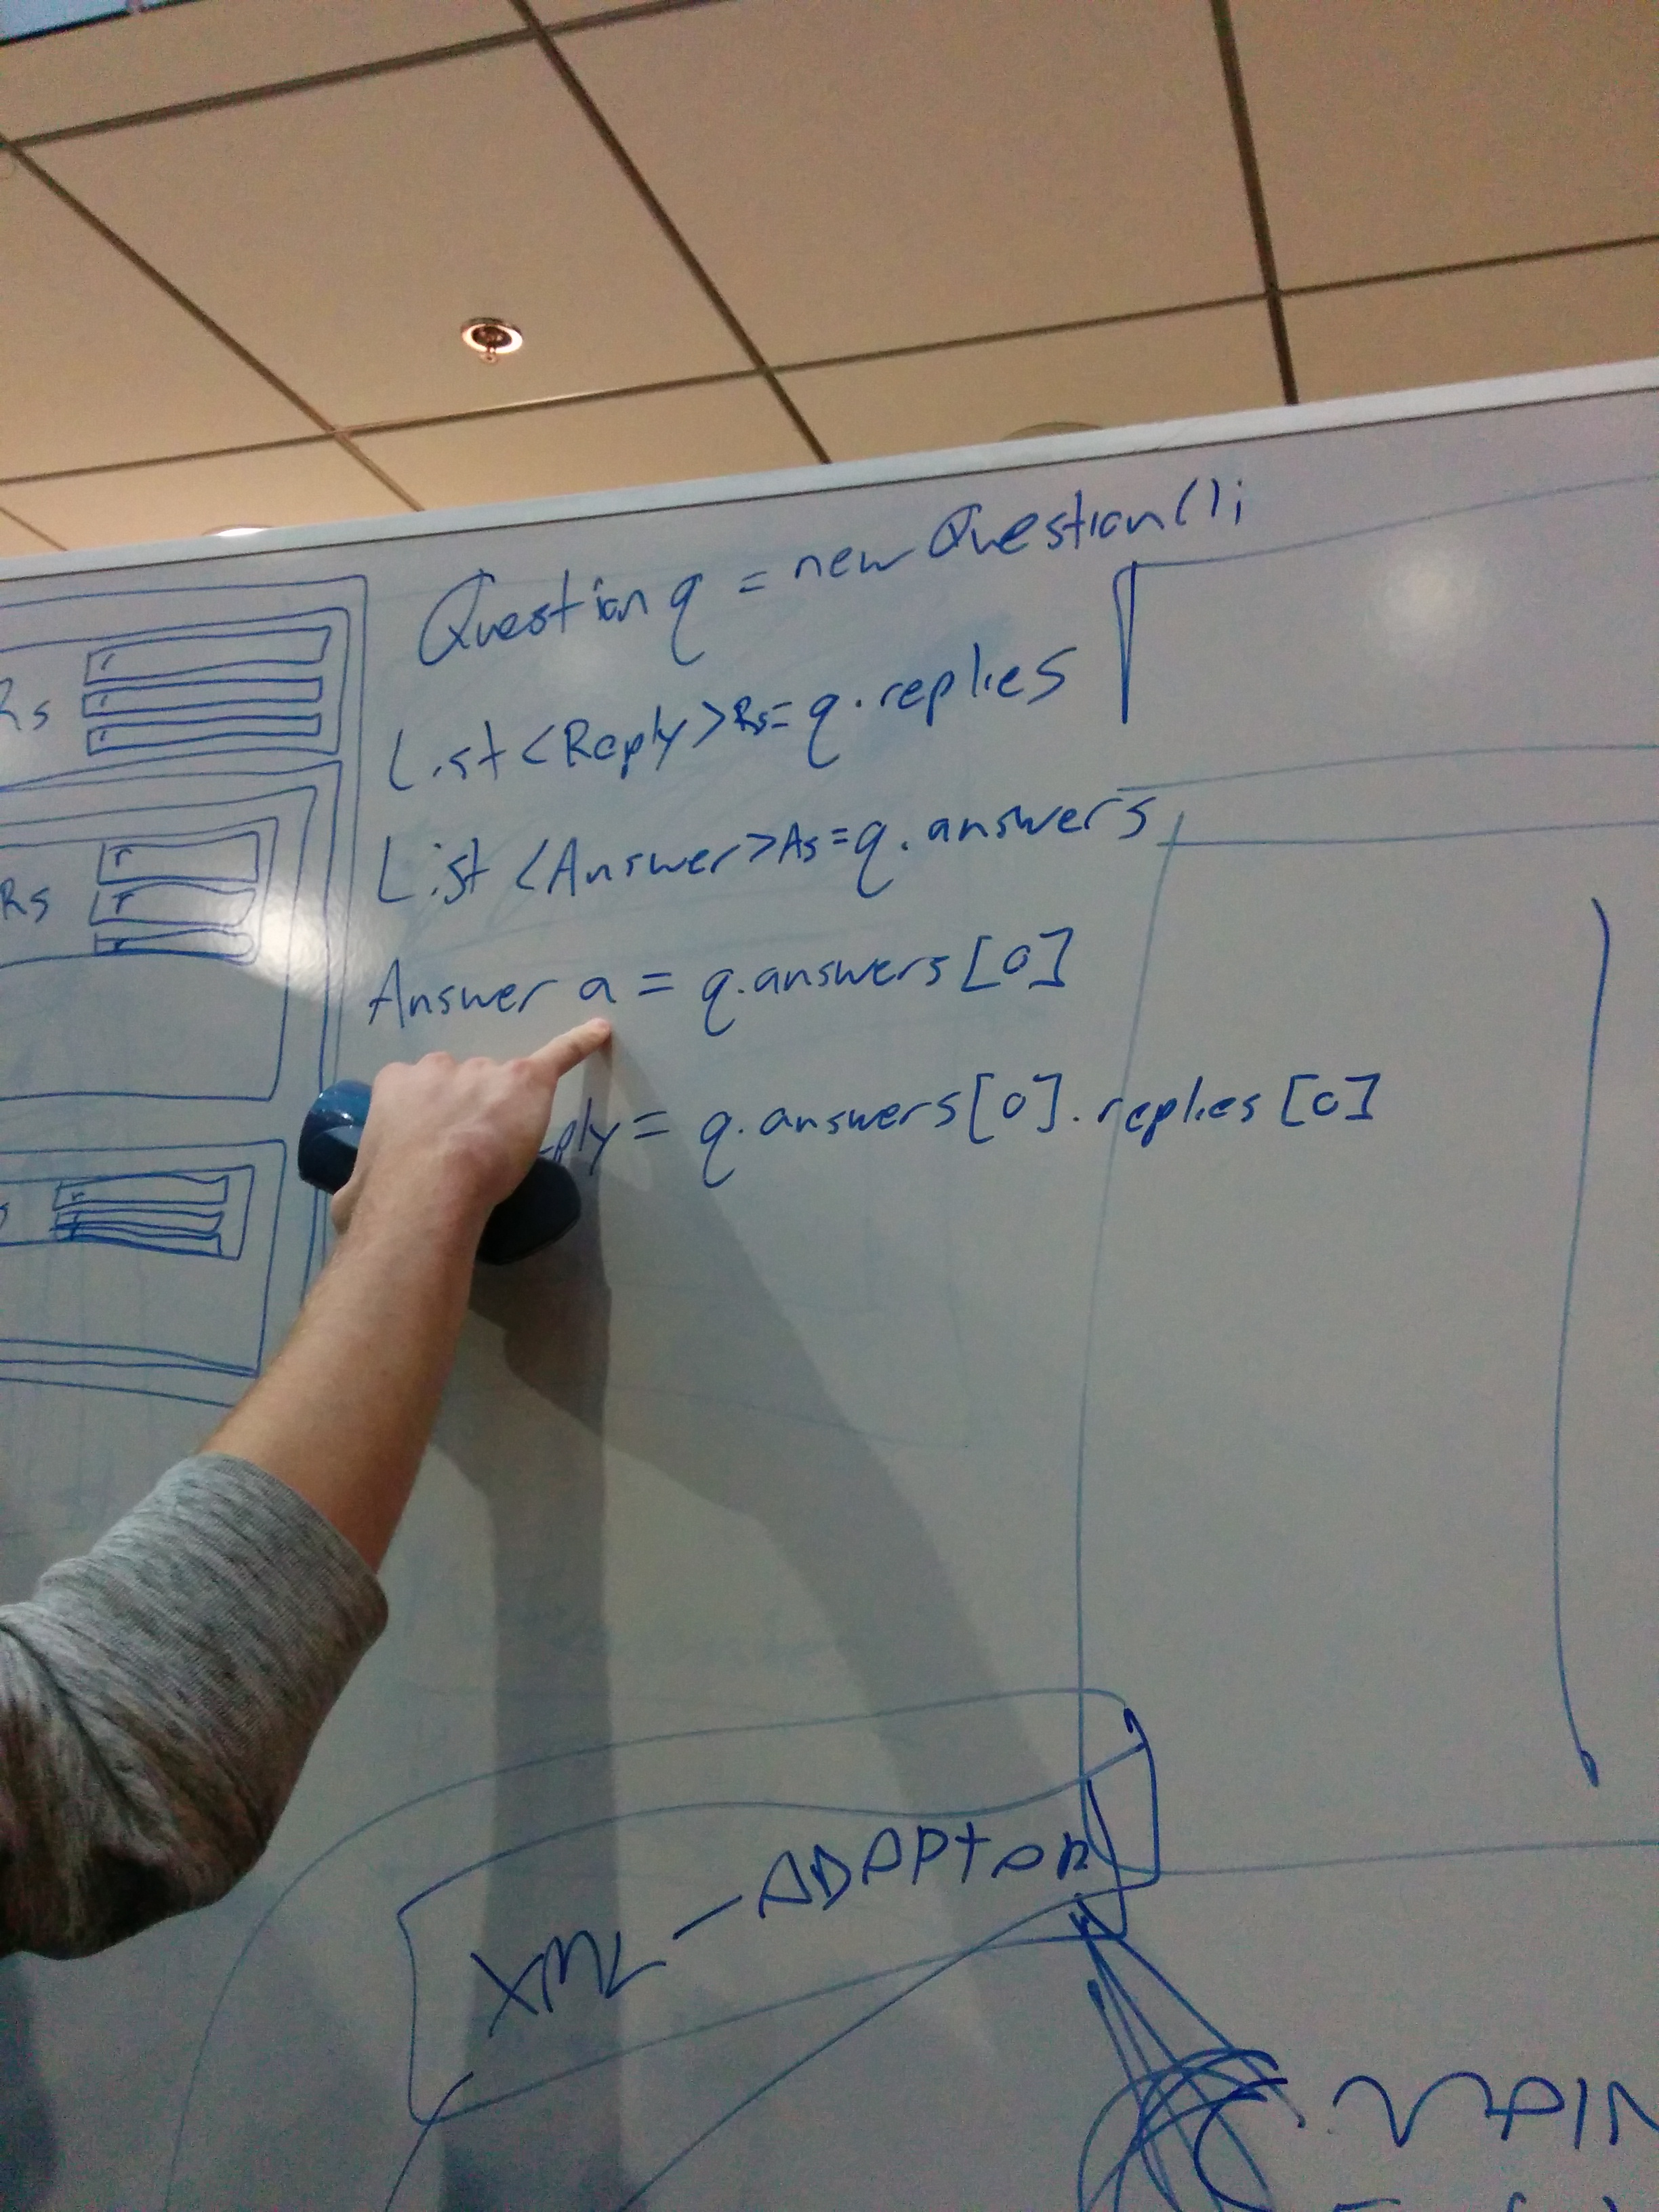 Question q = new Question();
List <Reply> Rs = q.replies
List <Answer> As = q.answers
Answer a = q.answers [0]
ply = q.answers[0].replies [0]
Rs
r
Rs
r
r
r
XML - ADAPTOR